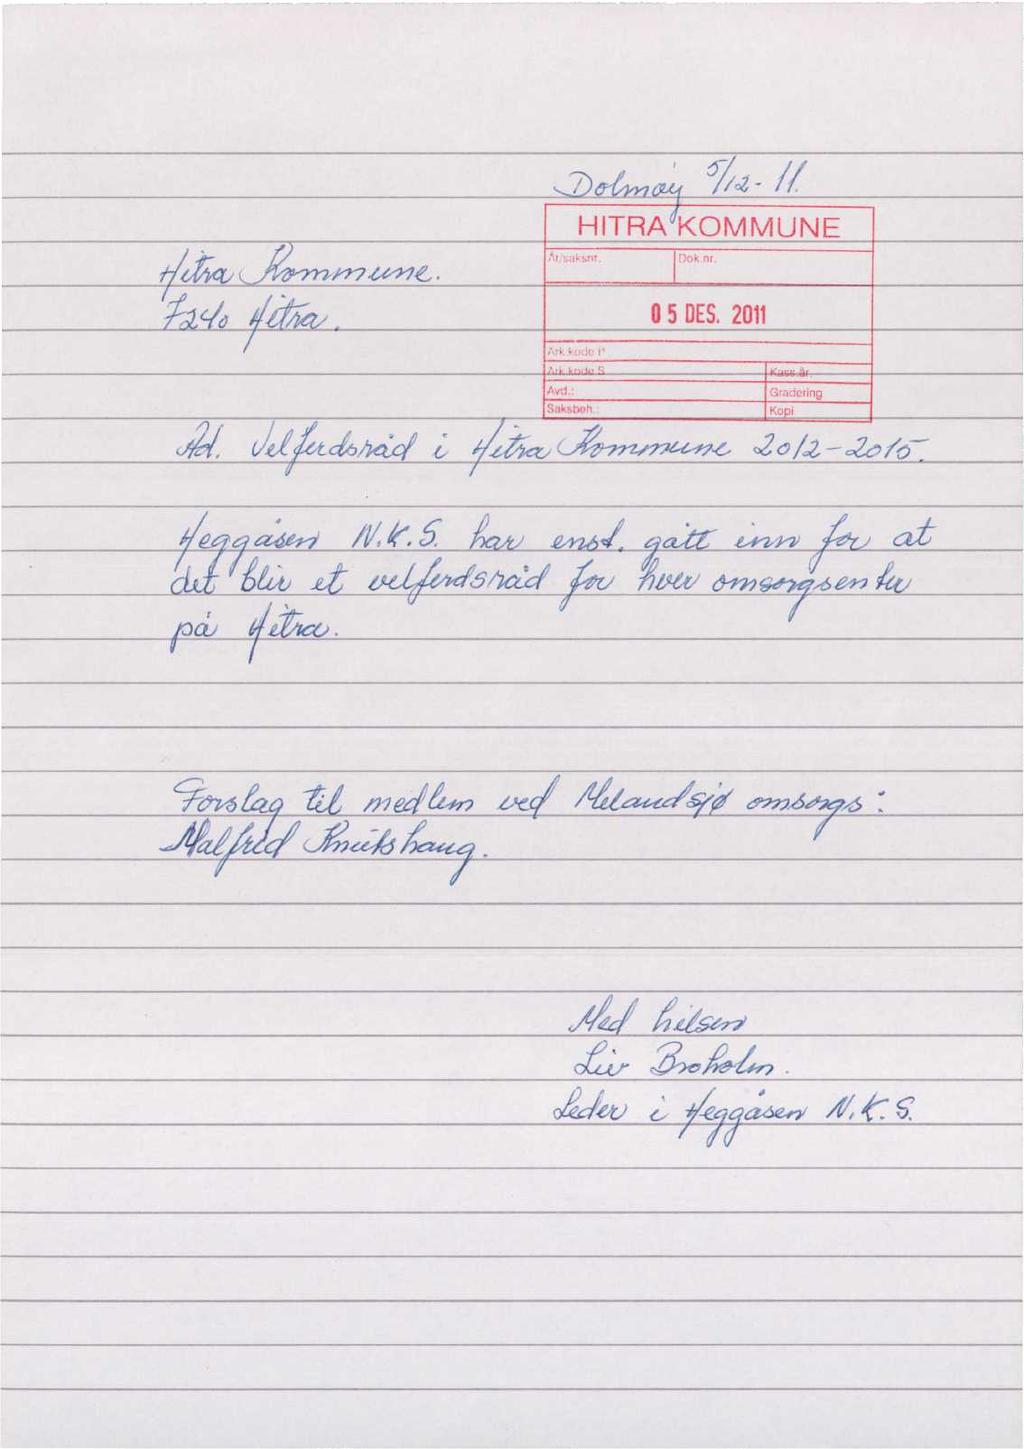 Dolmøy 5/12-11.
HITRA KOMMUNE
År/saksnr. Dok.nr.
Hitra Kommune.
7240 Hitra.
05 DES. 2011
Ark.kode P
Ark.kode S Kass.år.
Avd.: Gradering
Saksbeh.: Kopi
Ad. Velferdsråd i Hitra Kommune 2012-2015.
Heggåsen N.K.S. har enst. gått inn for at
det blir et velferdsråd for hver omsorgsenter
på Hitra.
Forslag til medlem ved Melandsjø omsorgs:
Malfrid Knutshaug.
Med hilsen
Liv Broholm.
Leder i Heggåsen N.K.S.